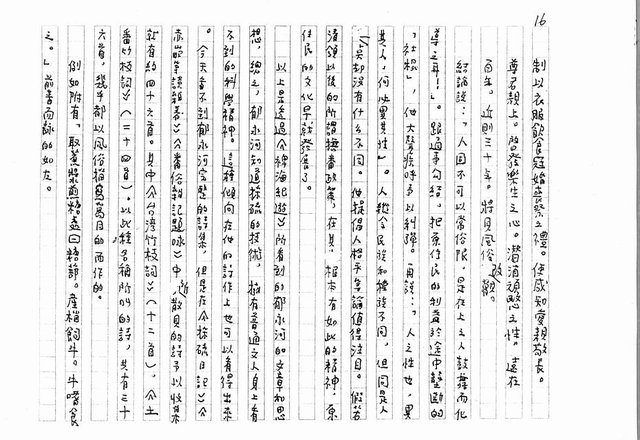 16
制以衣服飲食冠婚喪祭之禮。使咸知愛親敬長。
尊君親上。啟發樂生之心。潛消頑憝之性。遠在
百年。近則三十年。將見風俗改觀。
結論說：「人固不可以常俗限，是在上之人鼓舞而化
導之耳！」。跟通事勾結，把原住民的利益於途中
「社棍」，他大聲疾呼予以糾彈。再說：「人之性也，異
其人，何以異其性」。人縱令民族和種族不同，但同是人
，吳却沒有什么不同。他提倡人格平等論值得注目。假若
清領以後的所謂撫番政策，在其根本有如此的精神，原
住民的文化早就發展了。
以上是透過《裨海紀遊》所看到的郁永河的文章和思
想，總之，郁永河知道採硫的技術，擁有普通文人身上看
不到的科學精神。這種傾向在他的詩作上也可以看得出來
。今天看不到郁永河完整的詩集，但是在《採硫日記》《
赤嵌筆談雜卷》《番俗雜記題咏》中，近散見的詩予以收集
就有約四十六首。其中《台灣竹枝詞》（十二首），《土
番竹枝詞》（二十四首）。以此種名稱所叫的詩，共有三十
六首，幾乎都以風俗描寫為目的而作的。
例如附有「取蔗漿煎糖盡日糖蔀。產梢飼牛。牛嗜食
之。」前書而詠的如左。